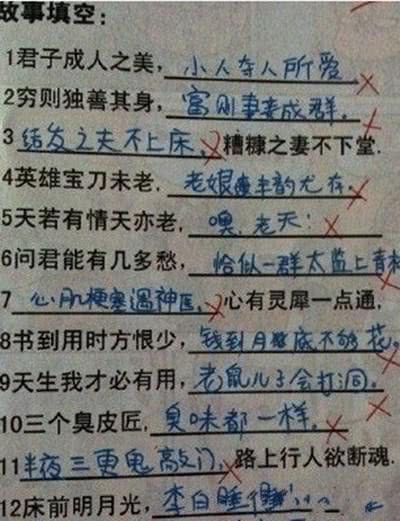 故事填空:
1君子成人之美,小人夺人所爱
2穷则独善其身,富则妻妾成群。
3结发之夫不上床,糟糠之妻不下堂.
4英雄宝刀未老,老娘丰韵尤存.
5天若有情天亦老,噢,老天!
6问君能有几多愁,恰似一群太监上青
7心肌梗塞遇神医,心有灵犀一点通,
8书到用时方恨少,钱到月底不够花。
9天生我才必有用,老鼠儿子会打洞.
10三个臭皮匠,臭味都一样。
11半夜三更鬼敲门,路上行人欲断魂.
12床前明月光,李白睡